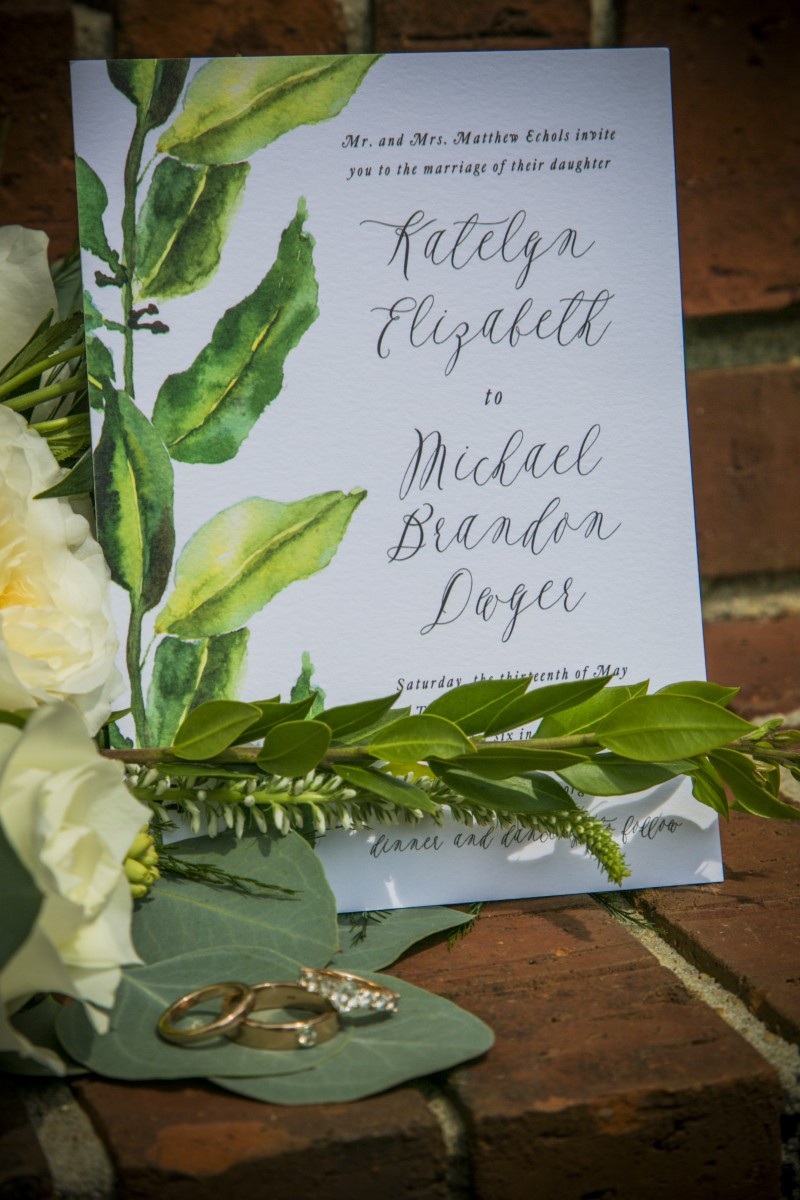 Mr. and Mrs. Matthew Echols invite
you to the marriage of their daughter
Katelyn
Elizabeth
to
Michael
Brandon
Dwyer
Saturday, the thirteenth of May
six in
dinner and dancing to follow